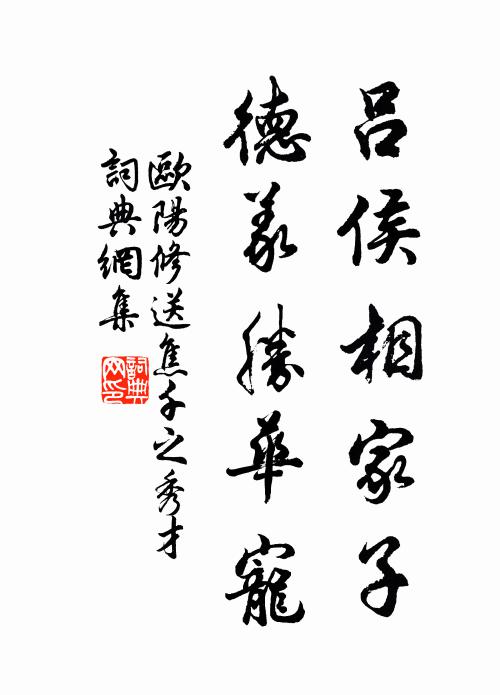 吕侯相家子
德義勝華寵
歐陽修送焦千之秀才
詞典網集
詞典网印